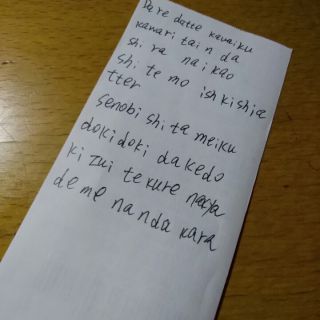 Dare datte kawaiku
kawari tain da
shi ra nai kao
shi te mo ishkishia
tter
senobi shi ta meiku
dokidoki dakedo
ki zui te kure
de me na nda kara